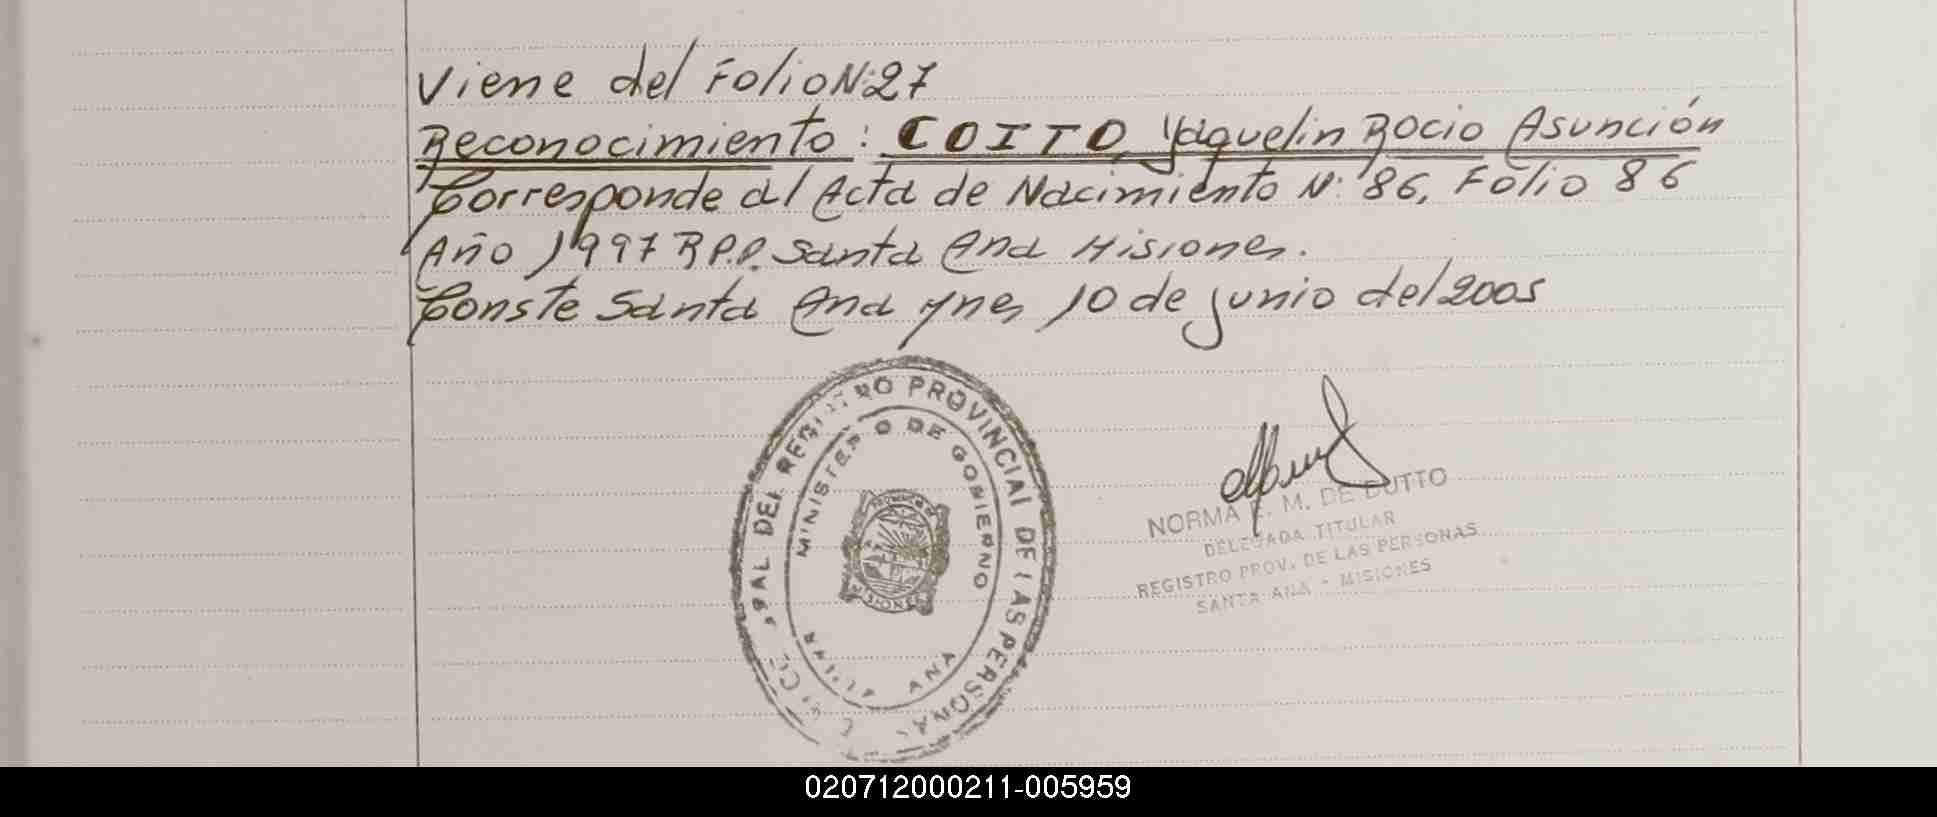 Viene del Folio N: 27
Reconocimiento: COITO, Yaquelin Rocio Asunción
Corresponde al Acta de Nacimiento N: 86, Folio 86
Año 1997 R.P.P. Santa Ana Misiones.
Conste Santa Ana Mnes 10 de junio del 2005
DEL REGISTRO PROVINCIAL DE LAS PERSONAS
MINISTERIO DE GOBIERNO
ANA
MISIONES
NORMA M. DE DUTTO
DELEGADA TITULAR
REGISTRO PROV. DE LAS PERSONAS
SANTA ANA - MISIONES
020712000211-005959